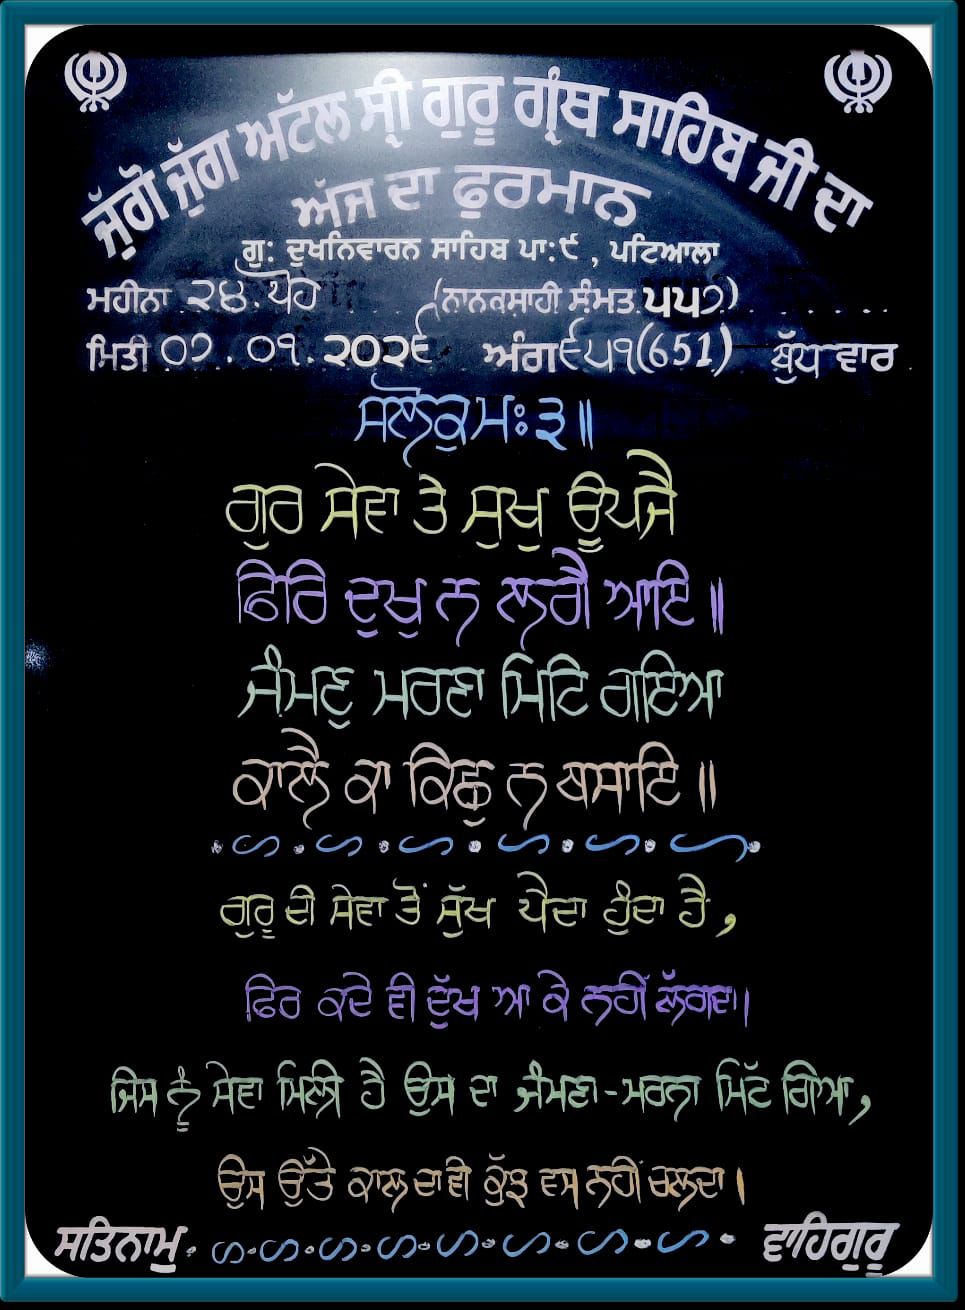 ਜੁੱਗੋ ਜੁੱਗ ਅੱਟਲ ਸ੍ਰੀ ਗੁਰੂ ਗ੍ਰੰਥ ਸਾਹਿਬ ਜੀ ਦਾ
ਅੱਜ ਦਾ ਫੁਰਮਾਨ
ਗੁ: ਦੁਖਨਿਵਾਰਨ ਸਾਹਿਬ ਪਾ:੯, ਪਟਿਆਲਾ
ਮਹੀਨਾ ੨੪. ਪੋਹ (ਨਾਨਕਸ਼ਾਹੀ ਸੰਮਤ ੫੫੭)
ਮਿਤੀ ੦੭.੦੧.੨੦੨੬ ਅੰਗ ੬੫੧(651) ਬੁੱਧ ਵਾਰ
ਸਲੋਕੁ ਮਃ ੩॥
ਗੁਰ ਸੇਵਾ ਤੇ ਸੁਖੁ ਊਪਜੈ
ਫਿਰਿ ਦੁਖੁ ਨ ਲਗੈ ਆਇ॥
ਜੰਮਣੁ ਮਰਣਾ ਮਿਟਿ ਗਇਆ
ਕਾਲੈ ਕਾ ਕਿਛੁ ਨ ਬਸਾਇ॥
ਗੁਰੂ ਦੀ ਸੇਵਾ ਤੋਂ ਸੁੱਖ ਪੈਦਾ ਹੁੰਦਾ ਹੈ,
ਫਿਰ ਕਦੇ ਵੀ ਦੁੱਖ ਆ ਕੇ ਨਹੀਂ ਲੱਗਦਾ।
ਜਿਸ ਨੂੰ ਸੇਵਾ ਮਿਲੀ ਹੈ ਉਸ ਦਾ ਜੰਮਣਾ-ਮਰਨਾ ਮਿੱਟ ਗਿਆ,
ਉਸ ਉੱਤੇ ਕਾਲ ਦਾ ਵੀ ਕੁੱਝ ਵਸ ਨਹੀਂ ਚਲਦਾ।
ਸਤਿਨਾਮੁ ਵਾਹਿਗੁਰੂ